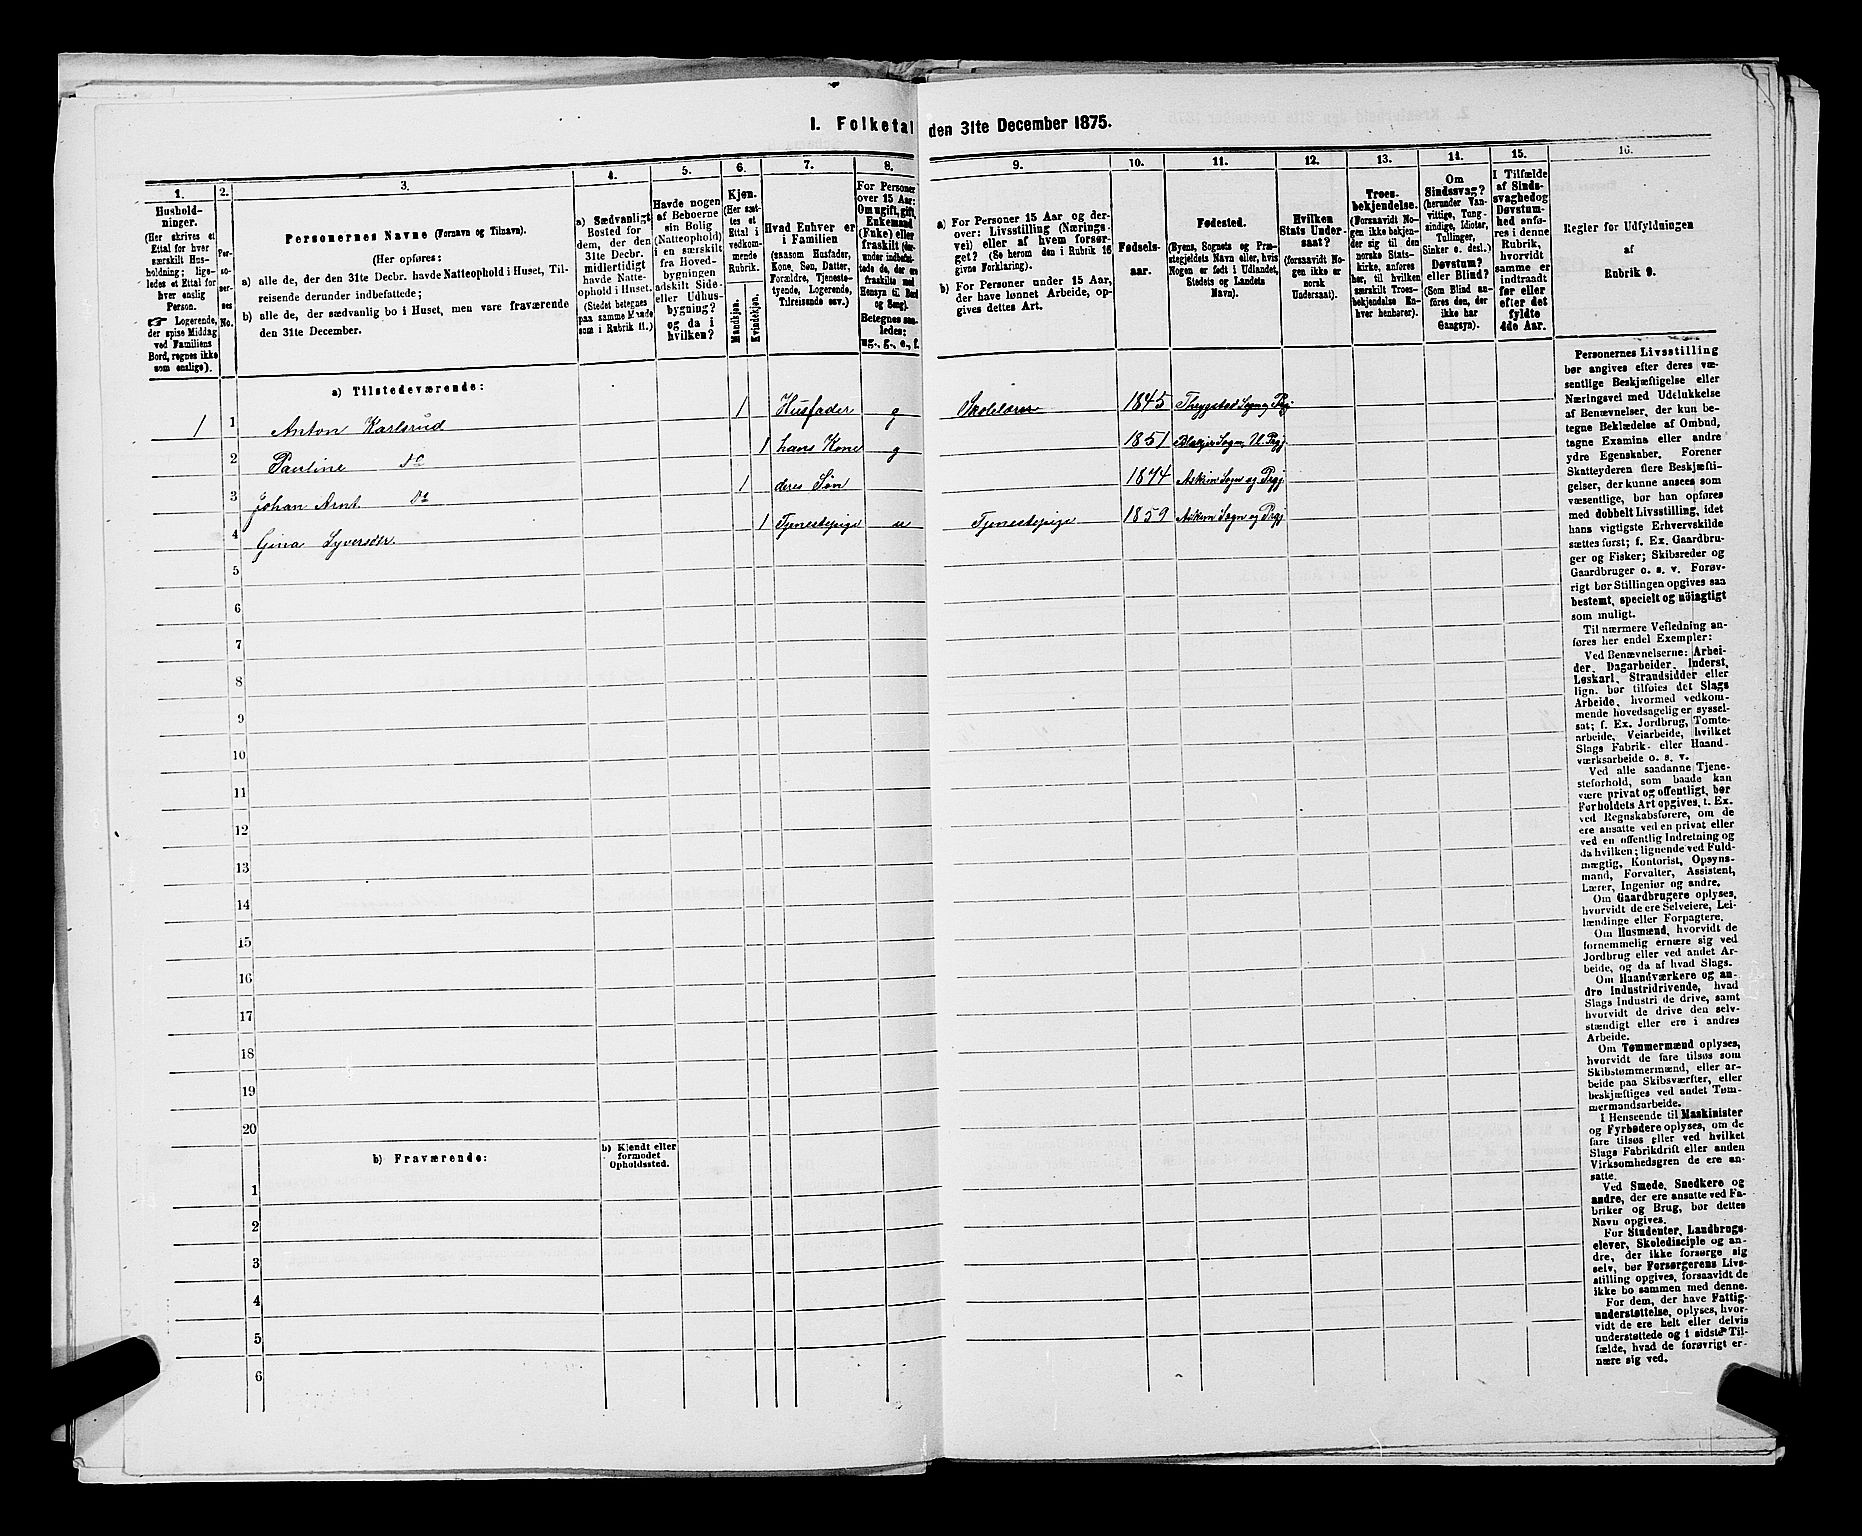 I. Folketal den 31te December 1875.
1.
Hushold-
ninger.
(Her skrives et
Ettal for hver
særskilt Hus-
holdning; lige-
ledes et Ettal for
hver enslig
Person.
☞ Logerende,
der spise Middag
ved Familiens
Bord, regnes ikke
som enslige).
2.
Per-
so-
ner-
nes
No.
3.
Personernes Navne (Fornavn og Tilnavn).
(Her opføres:
a) alle de, der den 31te Decbr. havde Natteophold i Huset, Til-
reisende derunder indbefattede;
b) alle de, der sædvanlig bo i Huset, men vare fraværende
den 31te December.
4.
a) Sædvanligt
Bosted for
dem, der den
31te Decbr.
midlertidigt
havde Natte-
ophold i Huset.
(Stedet betegnes
paa samme Maade
som i Rubrik 11.)
5.
Havde nogen
af Beboerne
sin Bolig
(Natteophold)
i en særskilt
fra Hoved-
bygningen
adskilt Side-
eller Udhus-
bygning?
og da i
hvilken?
6.
Kjøn.
(Her sæt-
tes et
Ettal i
vedkom-
mende
Rubrik.
Mandkjøn.
Kvindekjøn.
7.
Hvad Enhver er
i Familien
(saasom Husfader,
Kone, Søn, Datter,
Forældre, Tjeneste-
tyende, Logerende,
Tilreisende osv.)
8.
For Personer
over 15 Aar:
Om ugift, gift,
Enkemand
(Enke) eller
fraskilt (der-
under indbefat-
tede de, der ere
fraskilte med
Hensyn til Bord
og Seng).
Betegnes saa-
ledes:
ug., g., e., f.
9.
a) For Personer 15 Aar og der-
over: Livsstilling (Nærings-
vei) eller af hvem forsør-
get? (Se herom den i Rubrik 16
givne Forklaring).
b) For Personer under 15 Aar,
der have lønnet Arbeide, op-
gives dettes Art.
10.
Fødsels-
aar.
11.
Fødested.
(Byens, Sognets og Præ-
stegjeldets Navn, eller, hvis
Nogen er født i Udlandet,
Stedets og Landets
Navn).
12.
Hvilken
Stats Under-
saat?
(forsaavidt No-
gen ikke er
norsk
Undersaat).
13.
Troes-
bekjendelse.
(Forsaavidt No-
gen ikke bekjen-
der sig til den
norske Stats-
kirke, anføres
her, til hvilken
særskilt Troes-
bekjendelse En-
hver henhører).
14.
Om
Sindssvag?
(herunder Van-
vittige, Tung-
sindige, Idioter,
Tullinger,
Sinker o. desl.)
Døvstum?
eller Blind?
(Som Blind an-
føres den, der
ikke har
Gangsyn).
15.
I Tilfælde
af Sinds-
svaghed og
Døvstum-
hed anfø-
res i denne
Rubrik,
hvorvidt
samme er
indtraadt
før eller
efter det
fyldte
4de Aar.
16.
Regler for Udfyldningen
af
Rubrik 9.
a) Tilstedeværende:
1 1 Anton Karlsrud 1 Husfader g Skolelærer 1845 Thrygstad Sogn og Prgj
2 Pauline do 1 hans Kone g 1851 Sogn, Prgj
3 Johan Arnt do 1 deres Søn 1874 Askim Sogn og Prgj.
4 Gina Syversdtr. 1 Tjenestepige u Tjenestepige 1859 Askim Sogn og Prgj
5
6
7
8
9
10
11
12
13
14
15
16
17
18
19
20
b) Fraværende:
b) Kjendt eller
formodet
Opholdssted.
1
2
3
4
5
6
Personernes Livsstilling
bør angives efter deres væ-
sentlige Beskjæftigelse eller
Næringsvei med Udelukkelse
af Benævnelser, der kun be-
tegne Beklædelse af Ombud,
tagne Examina eller andre
ydre Egenskaber. Forener
Skatteyderen flere Beskjæfti-
gelser, der kunne ansees som
væsentlige, bør han opføres
med dobbelt Livsstilling, idet
hans vigtigste Erhvervskilde
sættes først; f. Ex. Gaardbru-
ger og Fisker; Skibsreder og
Gaardbruger o. s. v. Forøv-
rigt bør Stillingen opgives saa
bestemt, specielt og nöiagtigt
som muligt.
Til nærmere Veiledning an-
føres her endel Exempler:
Ved Benævnelserne: Arbei-
der, Dagarbeider, Inderst,
Løskarl, Strandsidder eller
lign. bør tilføies det Slags
Arbeide, hvormed vedkom-
mende hovedsagelig er syssel-
sat; f. Ex. Jordbrug, Tomte-
arbeide, Veiarbeide, hvilket
Slags Fabrik- eller Haand-
værksarbeide o. s. v.
Ved alle saadanne Tjene-
steforhold, som baade kan
være privat og offentligt, bør
Forholdets Art opgives, f. Ex.
ved Regnskabsførere, om de
ere ansatte ved en privat eller
ved en offentlig Indretning og
da hvilken; lignende ved Fuld-
mægtig, Kontorist, Opsyns-
mand, Forvalter, Assistent,
Lærer, Ingeniør og andre.
Om Gaardbrugere oplyses,
hvorvidt de ere Selveiere, Lei-
lændinge eller Forpagtere.
Om Husmænd, hvorvidt de
fornemmelig ernære sig ved
Jordbrug eller ved andet Ar-
beide, og da af hvad Slags.
Om Haandværkere og an-
dre Industridrivende, hvad
Slags Industri de drive, samt
hvorvidt de drive den selv-
stændigt eller ere i andres
Arbeide.
Om Tømmermænd oplyses,
hvorvidt de fare tilsøs som
Skibstømmermænd, eller ar-
beide paa Skibsværfter, eller
beskjæftiges ved andet Tøm-
mermandsarbeide.
I Henseende til Maskinister
og Fyrbødere oplyses, om de
fare tilsøs eller ved hvilket
Slags Fabrikdrift eller anden
Virksomhedsgren de ere an-
satte.
Ved Smede, Snedkere og
andre, der ere ansatte ved Fa-
briker og Brug, bør dettes
Navn opgives.
For Studenter, Landbrugs-
elever, Skoledisciple og an-
dre, der ikke forsørge sig
selv, bør Forsørgerens Livs-
stilling opgives, forsaavidt de
ikke bo sammen med denne.
For dem, der have Fattig-
understøttelse, oplyses, hvor-
vidt de ere helt eller delvis
understøttede og i sidste Til-
fælde, hvad de forøvrigt er-
nære sig ved.